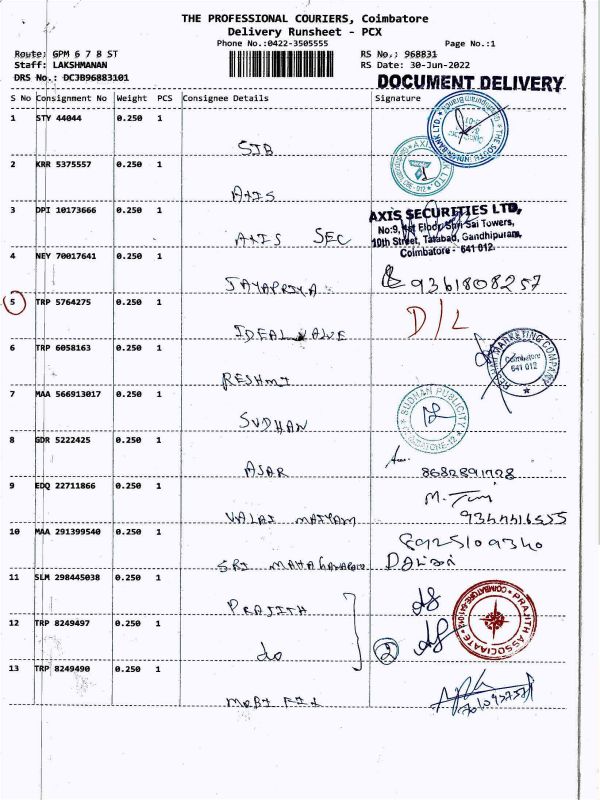 THE PROFESSIONAL COURIERS, Coimbatore
Delivery Runsheet - PCX
Phone No.:0422-3505555 Page No.:1
Route: GPM 6 7 8 ST RS No.: 968831
Staff: LAKSHMANAN RS Date: 30-Jun-2022
DRS No.: DC3B96883101 DOCUMENT DELIVERY
S No Consignment No Weight PCS Consignee Details Signature
1 STY 44044 0.250 1
SIB
2 KRR 5375557 0.250 1
AXIS
3 DPI 10173666 0.250 1
AXIS SEC
AXIS SECURITIES LTD,
No:9, 1st Floor Shri Sai Towers,
10th Street, Tatabad, Gandhipuram,
Coimbatore - 641 012.
4 NEY 70017641 0.250 1
JAYAPRIYA 9361808257
5 TRP 5764275 0.250 1
D/L
IDEAL
6 TRP 6058163 0.250 1
RESHMI
MARKETING COMPANY
Coimbatore
641 012
7 MAA 566913017 0.250 1
SUDHAN
SUDHAN PUBLICITY
COIMBATORE-12
8 GDR 5222425 0.250 1
ASAR 8682891728
9 EDQ 22711866 0.250 1
10 MAA 291399540 0.250 1
8925109340
SRI
11 SLM 298445038 0.250 1
PRAJITH
PRAJITH ASSOCIAATE
12 TRP 8249497 0.250 1
do 2
13 TRP 8249490 0.250 1